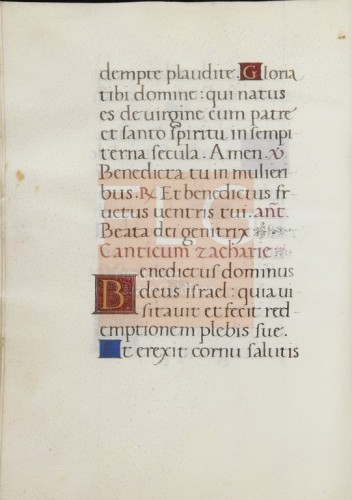 dempte plaudite. Gloria
tibi domine: qui natus
es de virgine cum patre
et santo spiritu in sempi
terna secula. Amen. ℣.
Benedicta tu in mulieri
bus. ℞. Et benedictus fr
uctus ventris tui. añt.
Beata dei genitrix
Canticum zacharie
Benedictus dominus
deus israel: quia vi
sitavit et fecit red
emptionem plebis sue.
Et erexit cornu salutis
FLC